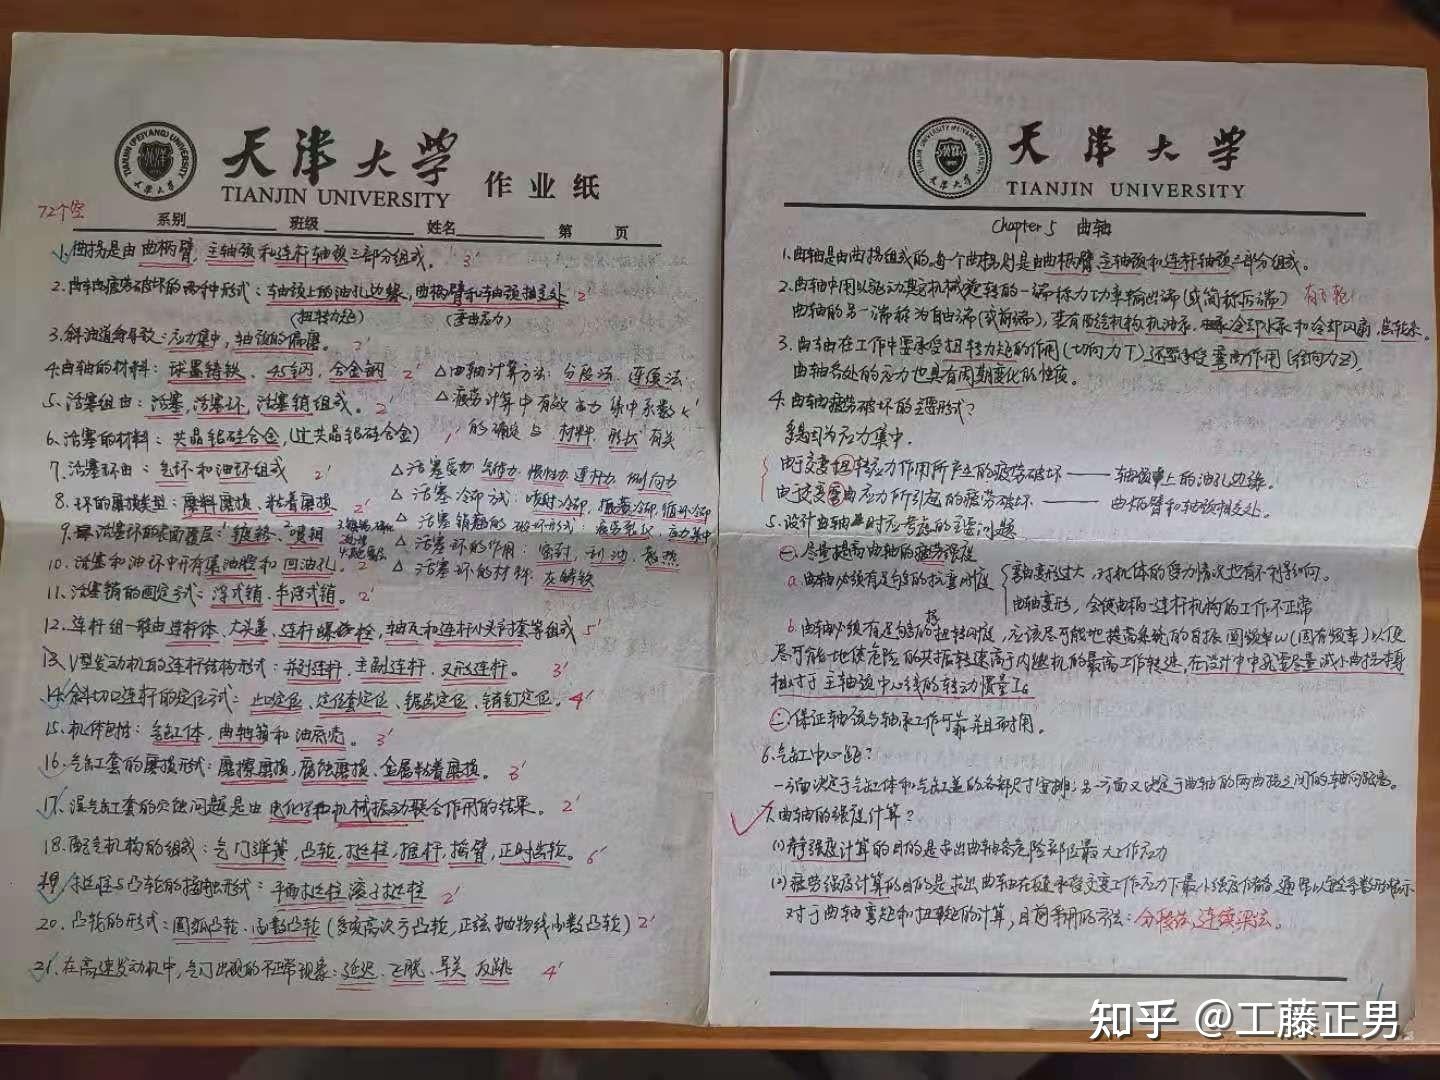 TIANJIN (PEIYANG) UNIVERSITY
天津大学
天津大学
TIANJIN UNIVERSITY
作业纸
72个空
系别 班级 姓名 第 页
1.曲拐是由曲柄臂,主轴颈和连杆轴颈三部分组成。3'
2.曲轴疲劳破坏的两种形式:轴颈上的油孔边缘,曲柄臂和轴颈相交处 2'
(扭转力矩) (弯曲应力)
3.斜油道会导致:应力集中,轴颈的偏磨。2'
4.曲轴的材料:球墨铸铁,45钢,合金钢 2'
△曲轴计算方法:分段法,连续法
5.活塞组由:活塞,活塞环,活塞销组成。2'
△疲劳计算中有效应力集中系数K
6.活塞的材料:共晶铝硅合金,(过共晶铝硅合金) 1'
的确定与材料,形状有关
7.活塞环由:气环和油环组成 2'
△活塞受力:气体力,惯性力,连杆力,侧向力
8.环的磨损类型:磨料磨损、粘着磨损 2'
△活塞冷却方式:喷射冷却,振荡冷却,循环冷却
9.活塞环的表面覆层:1镀铬、2喷钼
△活塞销的破坏形式:疲劳裂纹,应力集中
△活塞环的作用:密封,刮油,导热
10.活塞和油环中开有集油腔和回油孔。2'
△活塞环的材料:灰铸铁
11.活塞销的固定方式:浮式销、半浮式销。2'
12.连杆组一般由连杆体、大头盖、连杆螺栓、轴瓦和连杆小头衬套等组成 5'
13.V型发动机的连杆结构形式:并列连杆、主副连杆、叉形连杆。3'
14.斜切口连杆的定位方式:止口定位、定位套定位、锯齿定位、销钉定位。4'
15.机体包括:气缸体,曲轴箱和油底壳。3'
16.气缸套的磨损形式:磨擦磨损,腐蚀磨损、金属粘着磨损。3'
17.湿气缸套的穴蚀问题是由电化学和机械振动联合作用的结果。2'
18.配气机构的组成:气门弹簧,凸轮,挺柱,推杆,摇臂,正时齿轮。6'
19.挺柱与凸轮的接触形式:平面挺柱 滚子挺柱 2'
20.凸轮的形式:圆弧凸轮、函数凸轮(多项高次方凸轮,正弦抛物线函数凸轮) 2'
21.在高速发动机中,气门出现的不正常现象:延迟、飞脱、早关 反跳 4'
TIANJIN (PEIYANG) UNIVERSITY
天津大学
天津大学
TIANJIN UNIVERSITY
Chapter 5 曲轴
1.曲轴是由曲拐组成的,每个曲拐则是由曲柄臂,主轴颈和连杆轴颈三部分组成。
2.曲轴中用以驱动其它机械旋转的一端称为功率输出端(或简称后端) 有飞轮!
曲轴的另一端称为自由端(或前端),装有配气机构,机油泵,冷却水泵和冷却风扇,齿轮系。
3.曲轴在工作中要承受扭转力矩的作用(切向力T),还要承受弯曲作用(径向力Z),
曲轴各处的应力也具有周期变化的性质。
4.曲轴疲劳破坏的主要形式?
多是因为应力集中.
由于交变扭转应力作用所产生的疲劳破坏——轴颈上的油孔边缘。
由于交变弯曲应力所引起的疲劳破坏——曲柄臂和轴颈相交处。
5.设计曲轴时应考虑的主要问题
㊀.尽量提高曲轴的疲劳强度
a.曲轴必须有足够的抗弯刚度
弯曲变形过大,对机体的受力情况也有不利影响。
曲轴变形,会使曲柄-连杆机构的工作不正常
b.曲轴必须有足够的抗扭转刚度,应该尽可能地提高系统的自振圆频率ω(固有频率),以便
尽可能地使危险的共振转速高于内燃机的最高工作转速,在设计中中就要尽量减小曲拐本身
相对于主轴颈中心线的转动惯量I。
㊁.保证轴颈与轴承工作可靠并且耐用。
6.气缸中心距?
一方面决定于气缸体和气缸盖的各部尺寸安排;另一方面又决定于曲轴的两曲拐之间的轴向距离。
7.曲轴的强度计算?
(1)静强度计算的目的是求出曲轴各危险部位最大工作应力
(2)疲劳强度计算的目的是求出曲轴在反复承受交变工作应力下最小强度储备,通常以安全系数形式表示
对于曲轴弯矩和扭矩的计算,目前采用的方法:分段法,连续梁法。
知乎 @工藤正男